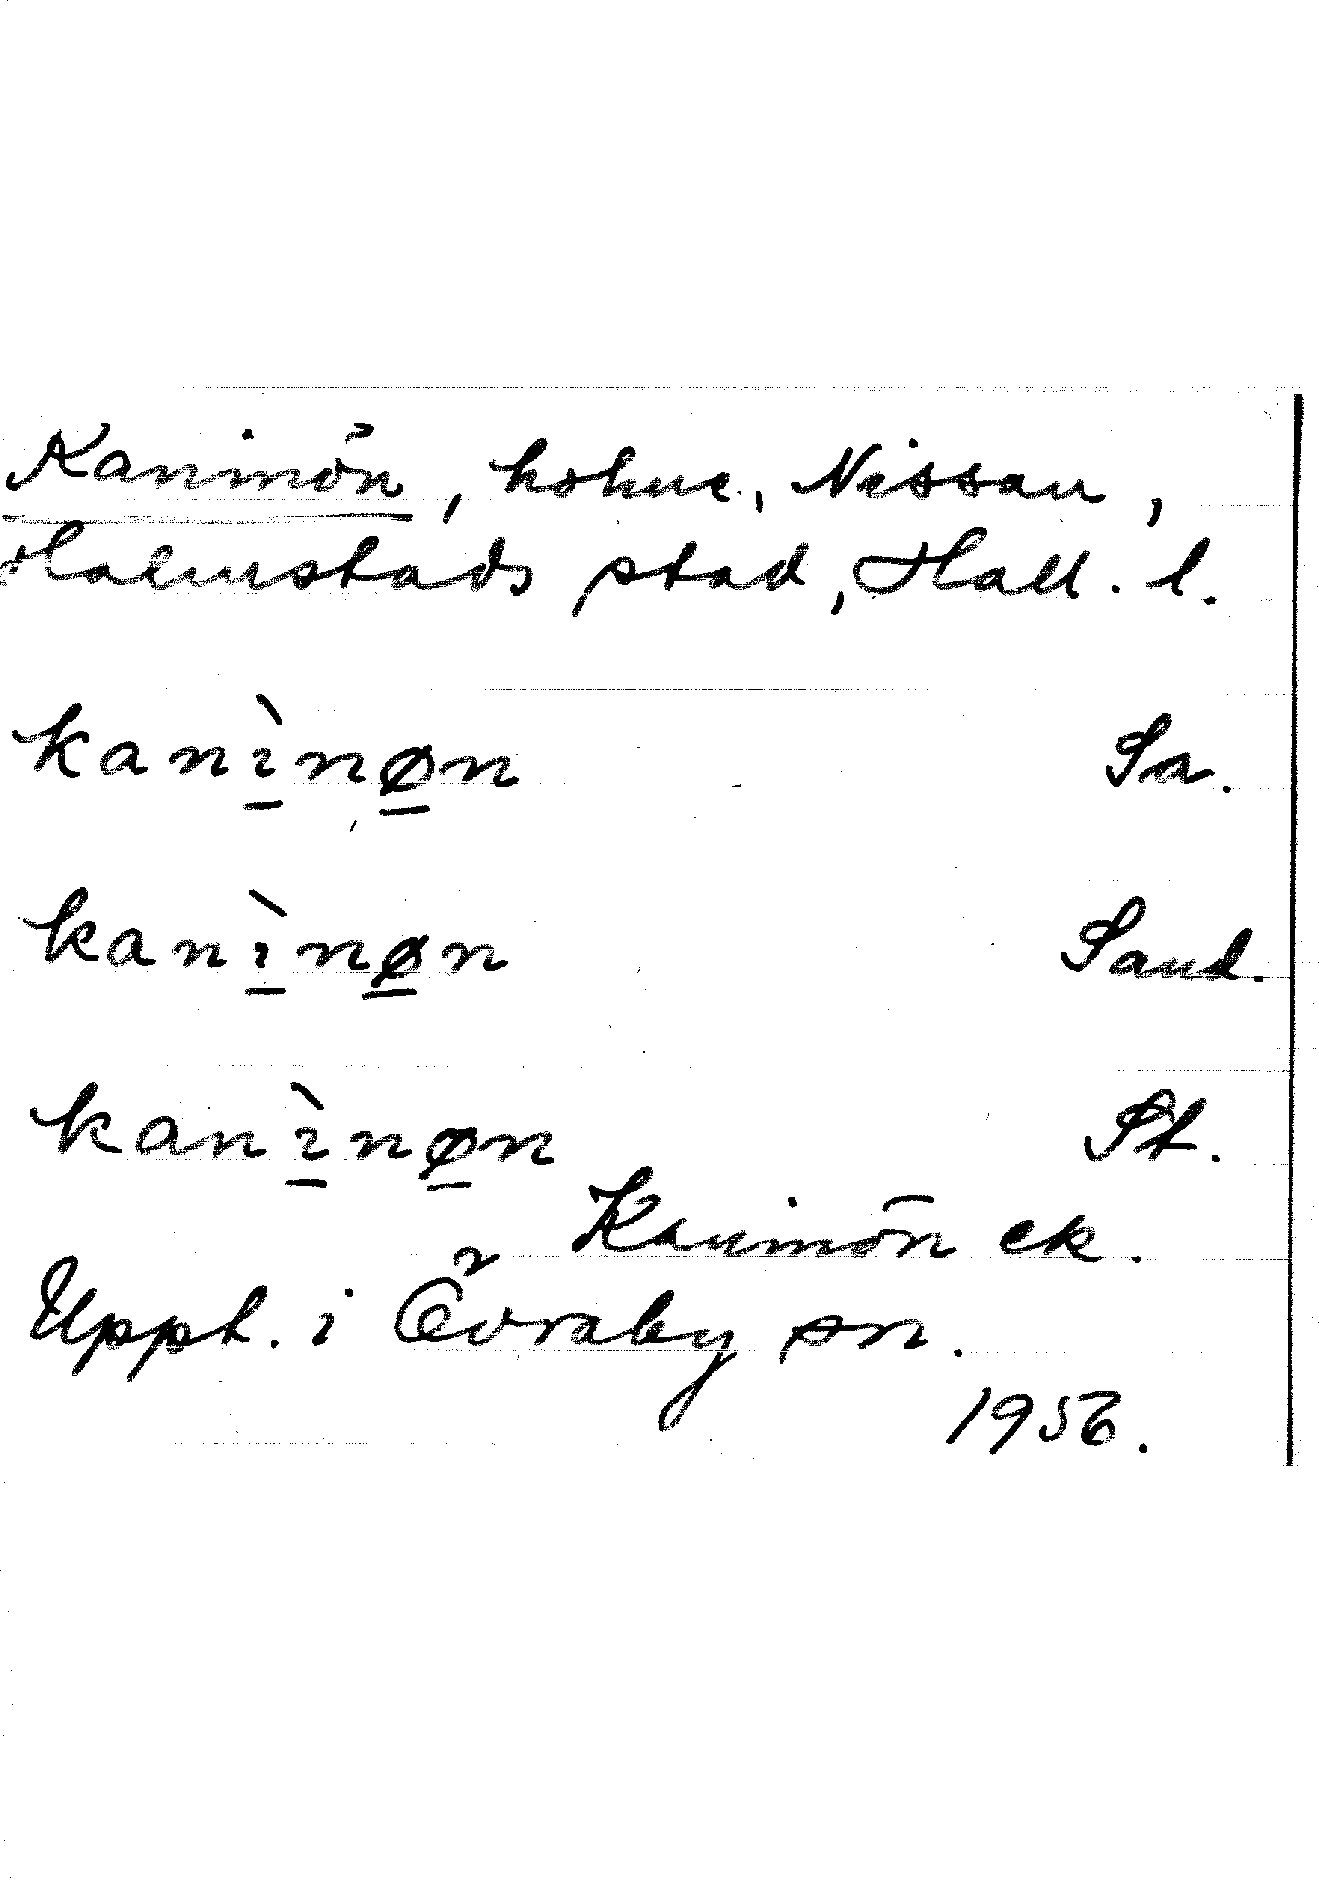 Kaninön, holme, Nissan,
Halmstads stad, Hall. l.
kanì̱nø̱n Sa.
kanì̱nø̱n Sand.
kanì̱nø̱n St.
Kaninön ek.
Uppt. i Övraby sn.
1956.